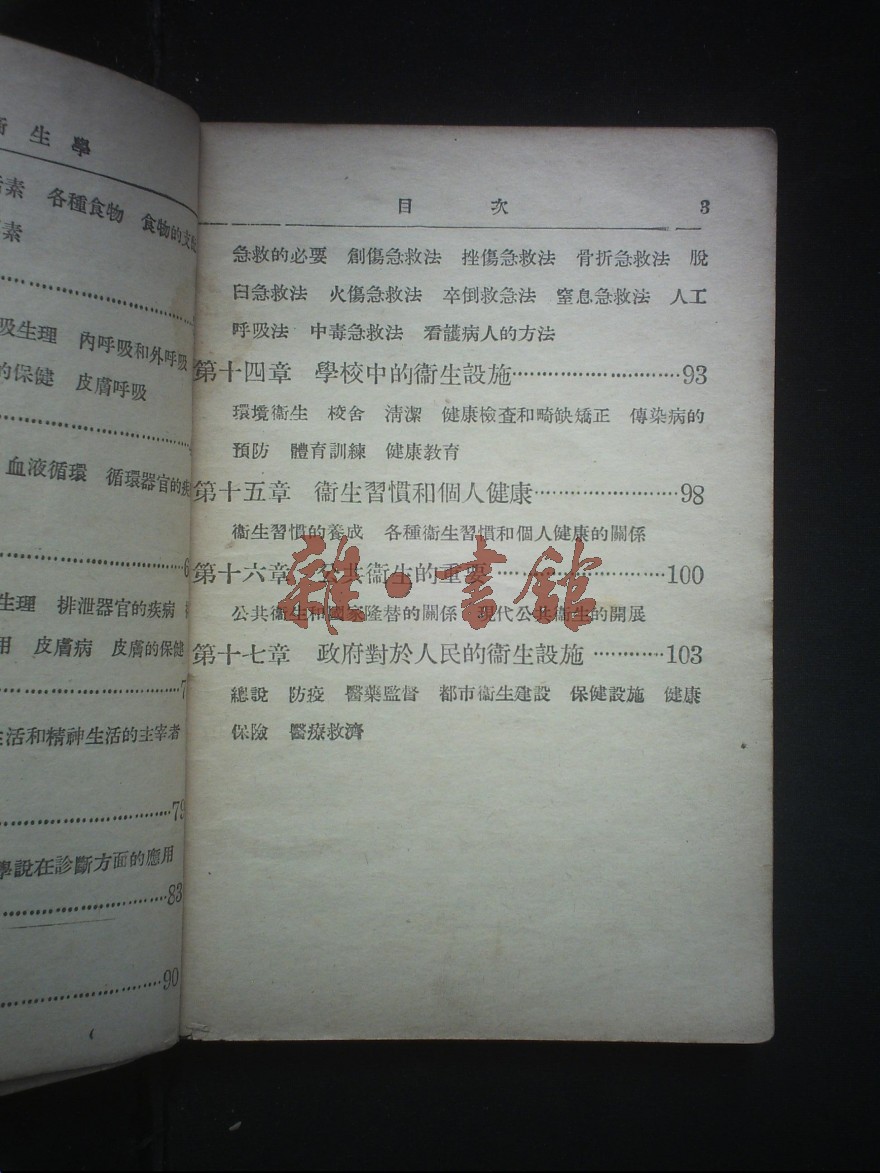 生學
素 各種食物 食物的支配
素
吸生理 內呼吸和外呼吸
的保健 皮膚呼吸
血液循環 循環器官的疾
6
生理 排泄器官的疾病
用 皮膚病 皮膚的保健
7
活和精神生活的主宰者
79
學說在診斷方面的應用
83
90
目 次 3
急救的必要 創傷急救法 挫傷急救法 骨折急救法 脫
臼急救法 火傷急救法 卒倒救急法 窒息急救法 人工
呼吸法 中毒急救法 看護病人的方法
第十四章 學校中的衞生設施…………………………93
環境衞生 校舍 清潔 健康檢查和畸缺矯正 傳染病的
預防 體育訓練 健康教育
第十五章 衞生習慣和個人健康…………………98
衞生習慣的養成 各種衞生習慣和個人健康的關係
第十六章 公共衞生的重要……………………100
公共衞生和國家隆替的關係 現代公共衞生的開展
第十七章 政府對於人民的衞生設施…………103
總說 防疫 醫藥監督 都市衞生建設 保健設施 健康
保險 醫療救濟
雜·書館